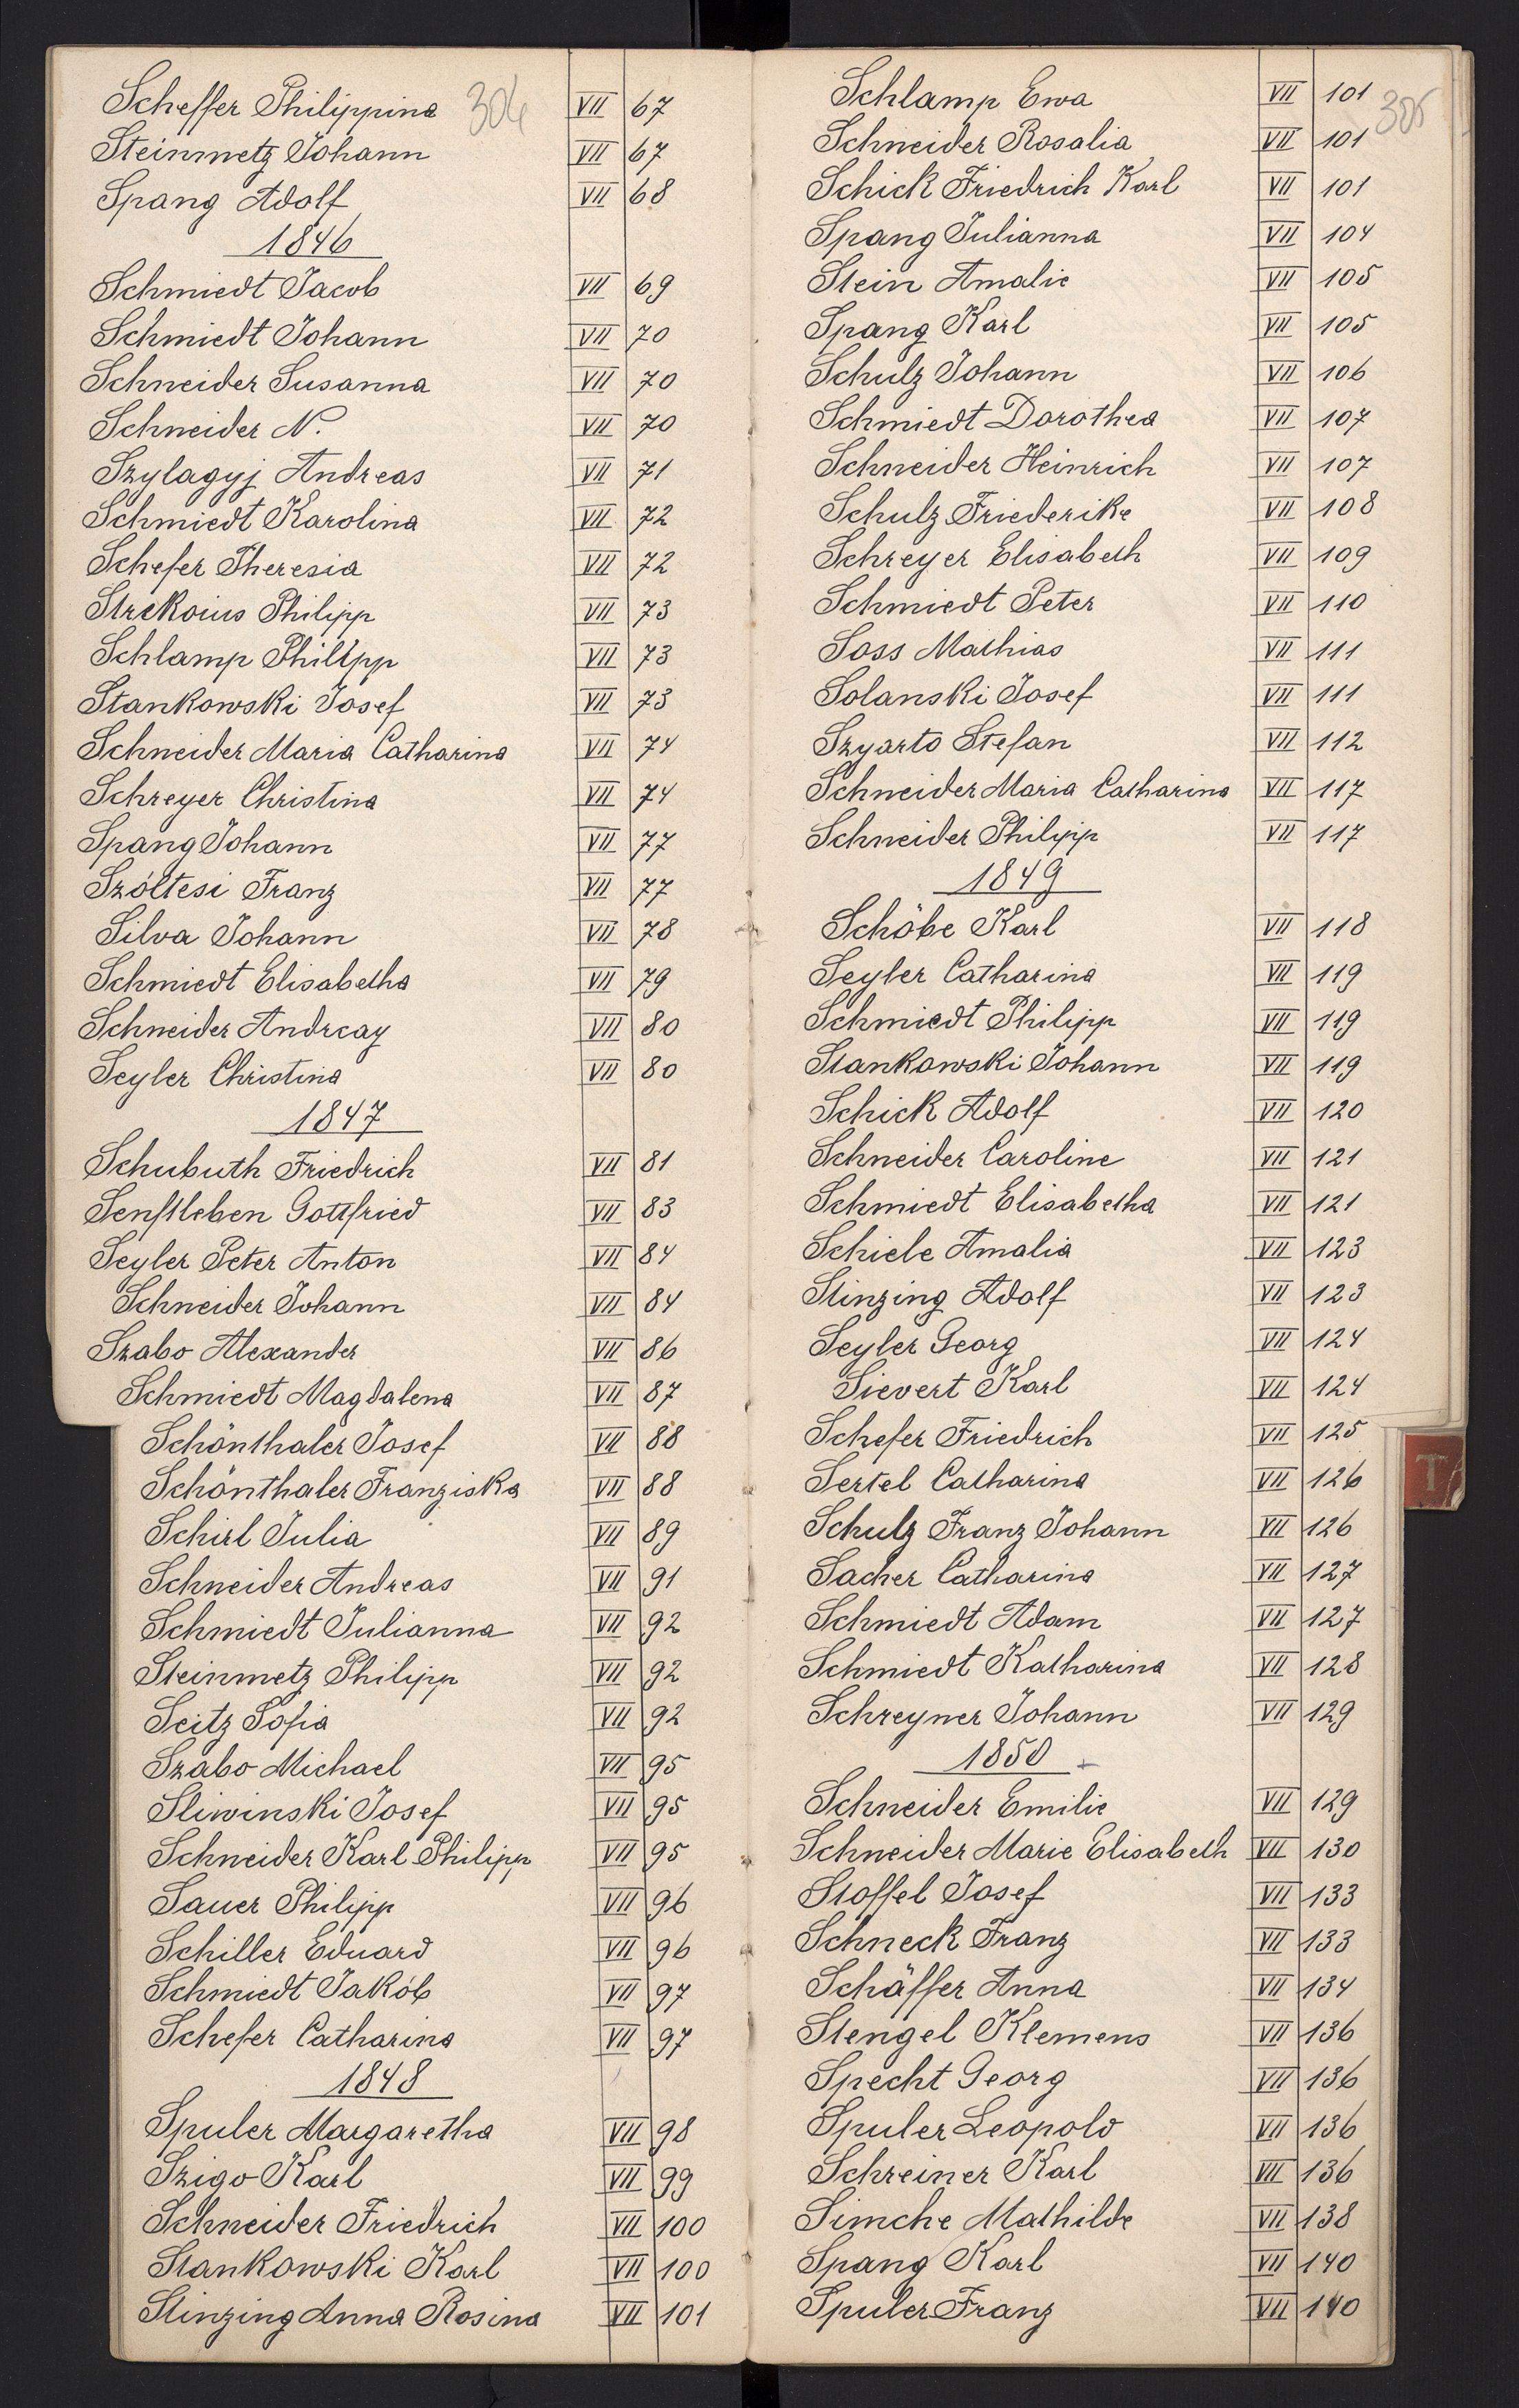 304
Scheffer Philippina VII 67
Steinmetz Johann VII 67
Spang Adolf VII 68
1846
Schmiedt Jacob VII 69
Schmiedt Johann VII 70
Schneider Susanna VII 70
Schneider N. VII 70
Szylagyj Andreas VII 71
Schmiedt Karolina VII 72
Schefer Theresia VII 72
Strekoius Philipp VII 73
Schlamp Philipp VII 73
Stankowski Josef VII 73
Schneider Maria Catharina VII 74
Schreyer Christina VII 74
Spang Johann VII 77
Szóltesi Franz VII 77
Silva Johann VII 78
Schmiedt Elisabetha VII 79
Schneider Andreay VII 80
Seyler Christina VII 80
1847
Schubuth Friedrich VII 81
Senftleben Gottfried VII 83
Seyler Peter Anton VII 84
Schneider Johann VII 84
Szabo Alexander VII 86
Schmiedt Magdalena VII 87
Schönthaler Josef VII 88
Schönthaler Franziska VII 88
Schirl Julia VII 89
Schneider Andreas VII 91
Schmiedt Julianna VII 92
Steinmetz Philipp VII 92
Seitz Sofia VII 92
Szabo Michael VII 95
Sliwinski Josef VII 95
Schneider Karl Philipp VII 95
Sauer Philipp VII 96
Schiller Eduard VII 96
Schmiedt Jakób VII 97
Schefer Catharina VII 97
1848
Spuler Margaretha VII 98
Szigo Karl VII 99
Schneider Friedrich VII 100
Stankowski Karl VII 100
Stinzing Anna Rosina VII 101
305
Schlamp Ewa VII 101
Schneider Rosalia VII 101
Schick Friedrich Karl VII 101
Spang Julianna VII 104
Stein Amalie VII 105
Spang Karl VII 105
Schulz Johann VII 106
Schmiedt Dorothea VII 107
Schneider Heinrich VII 107
Schulz Friederike VII 108
Schreyer Elisabeth VII 109
Schmiedt Peter VII 110
Soss Mathias VII 111
Solanski Josef VII 111
Szyarto Stefan VII 112
Schneider Maria Catharina VII 117
Schneider Philipp VII 117
1849
Schöbe Karl VII 118
Seyler Catharina VII 119
Schmiedt Philipp VII 119
Stankowski Johann VII 119
Schick Adolf VII 120
Schneider Caroline VII 121
Schmiedt Elisabetha VII 121
Schiele Amalia VII 123
Stinzing Adolf VII 123
Seyler Georg VII 124
Sievert Karl VII 124
Schefer Friedrich VII 125
Sertel Catharina VII 126
Schulz Franz Johann VII 126
Sacher Catharina VII 127
Schmiedt Adam VII 127
Schmiedt Katharina VII 128
Schreyner Johann VII 129
1850
Schneider Emilie VII 129
Schneider Marie Elisabeth VII 130
Stoffel Josef VII 133
Schneck Franz VII 133
Schäffer Anna VII 134
Stengel Klemens VII 136
Specht Georg VII 136
Spuler Leopold VII 136
Schreiner Karl VII 136
Simche Mathilde VII 138
Spang Karl VII 140
Spuler Franz VII 140
T